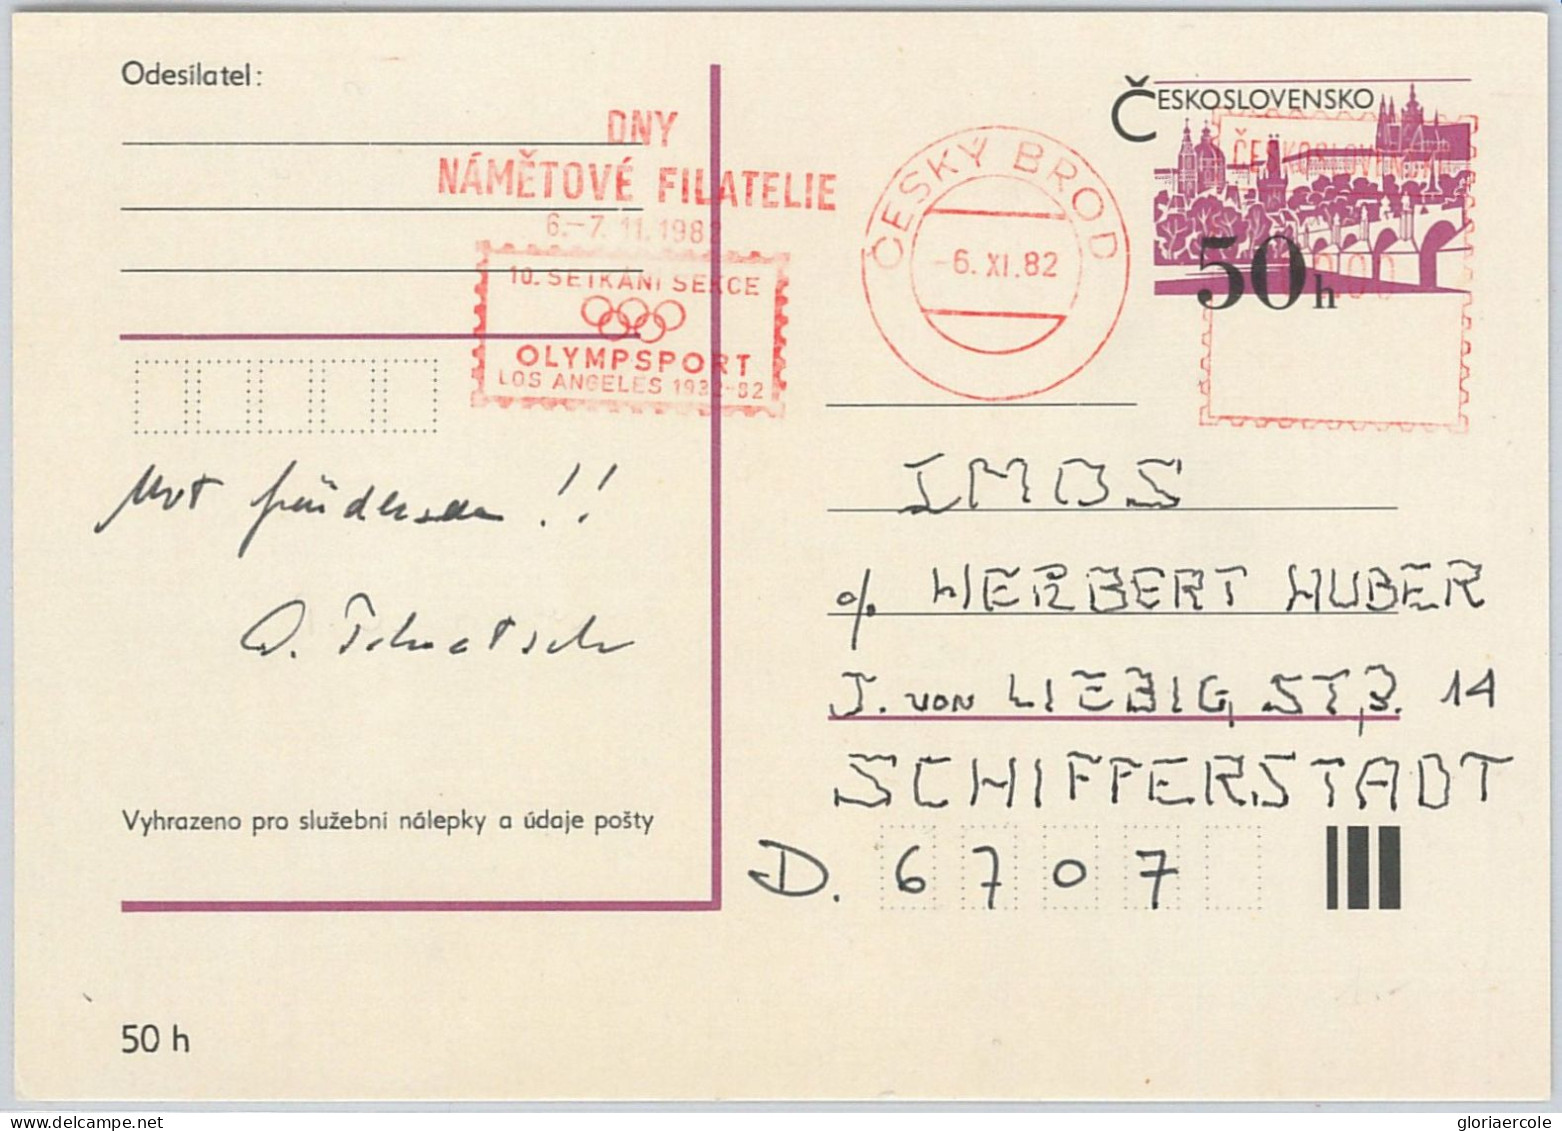 Odesílatel:
DNY
NÁMĚTOVÉ FILATELIE
6.-7. 11. 1982
10. SETKÁNÍ SEKCE
OLYMPSPORT
LOS ANGELES 1932-82
ČESKÝ BROD
-6. XI. 82
ČESKOSLOVENSKO
ČESKOSLOVENSKO
50 h
IMOS
c/. HERBERT HUBER
J. von LIEBIG, STR. 14
SCHIFFERSTADT
D. 6707
Vyhrazeno pro služební nálepky a údaje pošty
50 h
gloriaercole